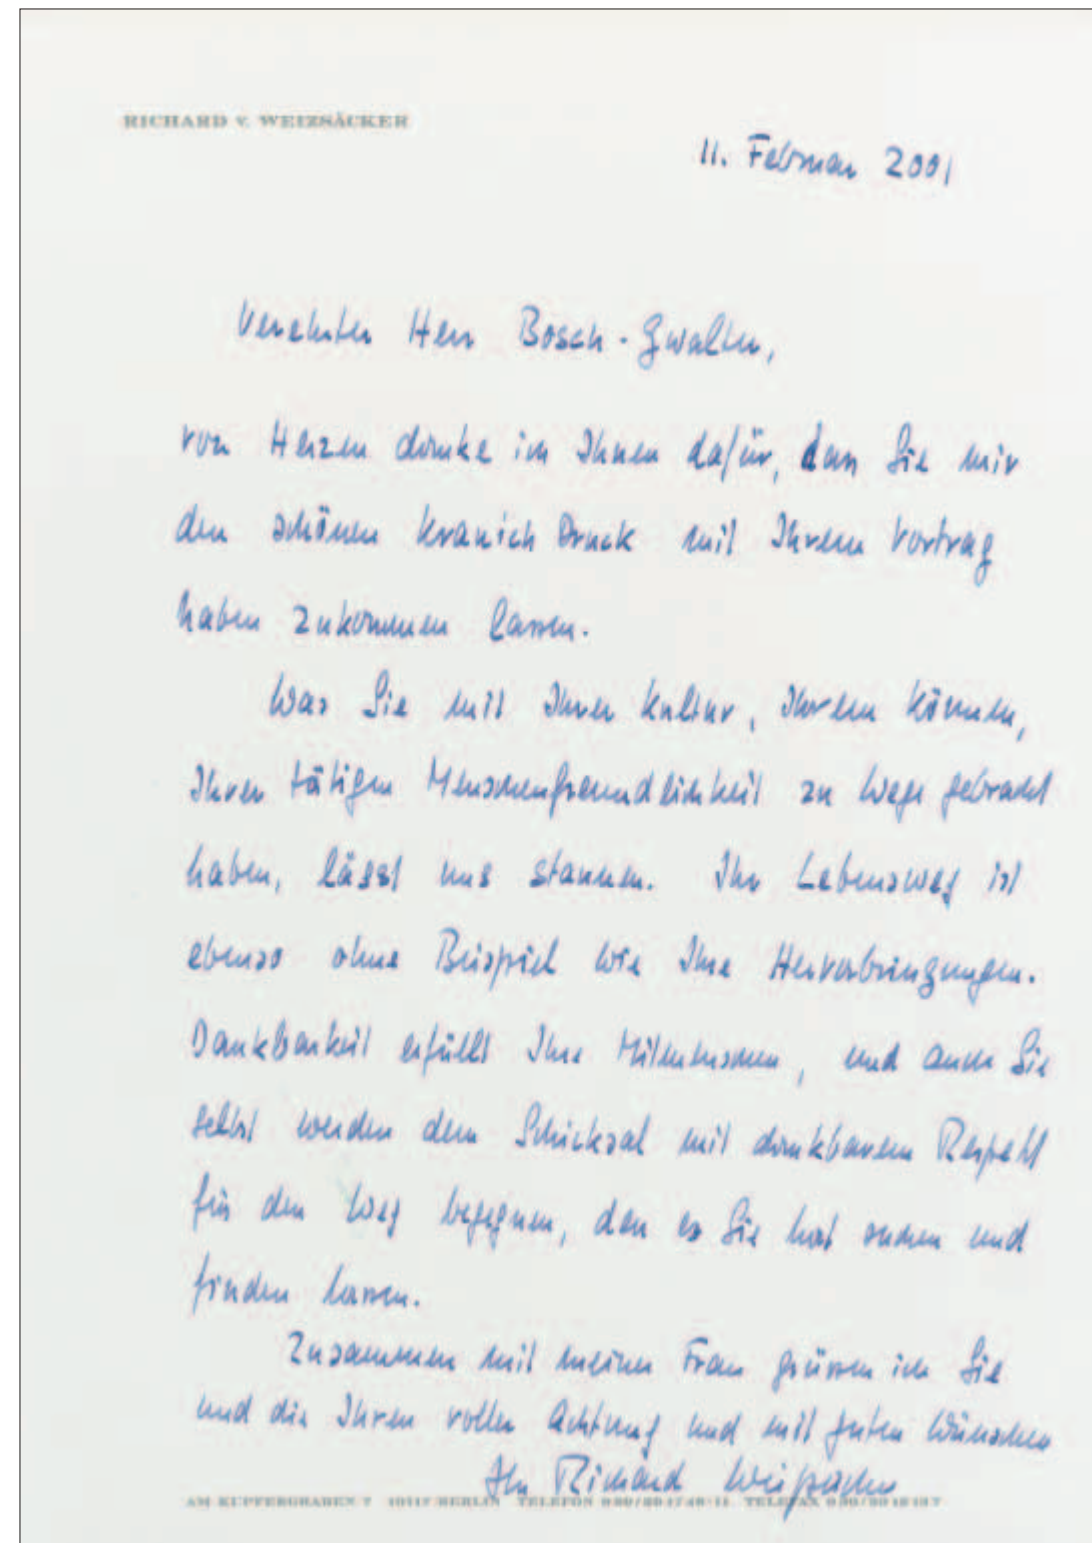 RICHARD v. WEIZSÄCKER
11. Februar 2001
Verehrter Herr Bosch-Gwalter,
von Herzen danke ich Ihnen dafür, dass Sie mir
den schönen Kranich Druck mit Ihrem Vortrag
haben zukommen lassen.
Was Sie mit Ihrer Kultur, Ihrem Können,
Ihrer tätigen Menschenfreundlichkeit zu Wege gebracht
haben, lässt uns staunen. Ihr Lebensweg ist
ebenso ohne Beispiel wie Ihre Hervorbringungen.
Dankbarkeit erfüllt Ihre Mitmenschen, und auch Sie
selbst werden dem Schicksal mit dankbarem Respekt
für den Weg begegnen, den es Sie hat suchen und
finden lassen.
Zusammen mit meiner Frau grüssen ich Sie
und die Ihren voller Achtung und mit guten Wünschen
Ihr Richard Weizsäcker
AM KUPFERGRABEN 7 10117 BERLIN TELEFON TELEFAX